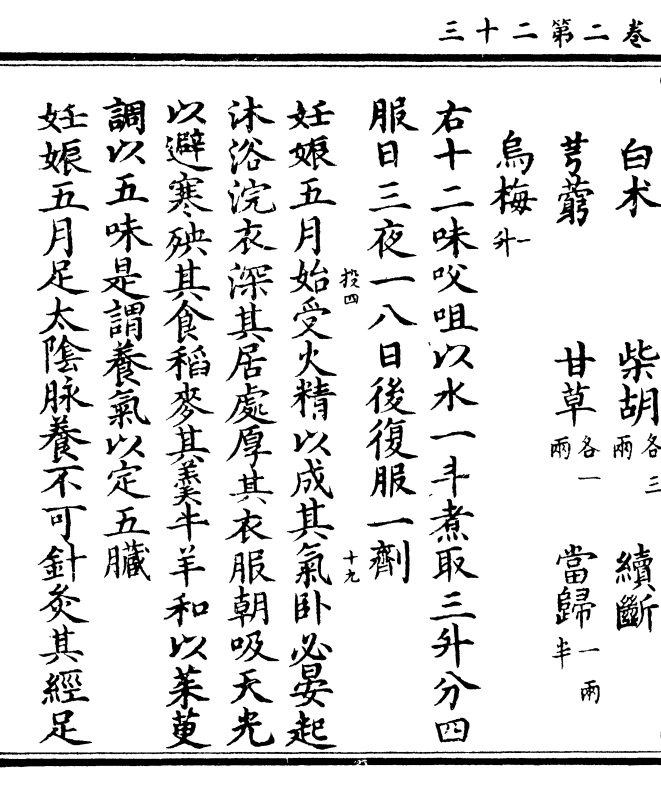 卷二第二十三
白朮 柴胡各三兩 續斷
芎藭 甘草各一兩 當歸一兩半
烏梅一升
右十二味㕮咀以水一斗煮取三升分四
服日三夜一八日後復服一劑
投四 十九
妊娠五月始受火精以成其氣卧必晏起
沐浴浣衣深其居處厚其衣服朝吸天光
以避寒殃其食稻麥其羹牛羊和以茱萸
調以五味是謂養氣以定五臟
妊娠五月足太陰脉養不可針灸其經足